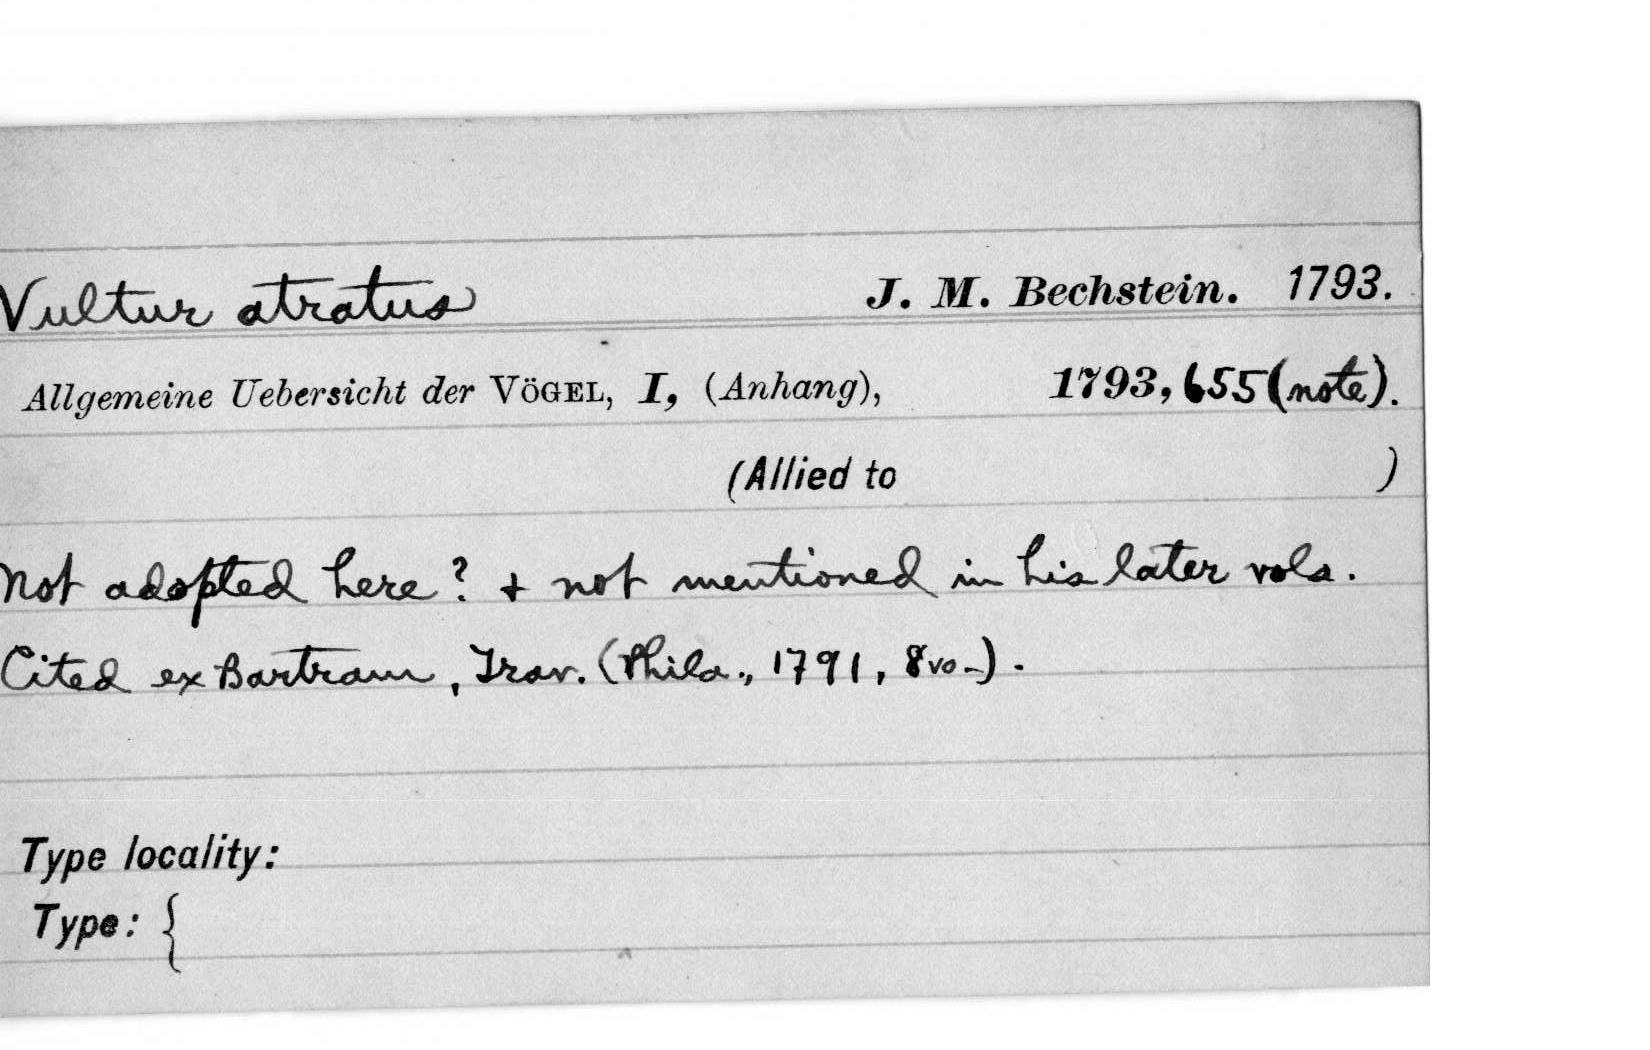 Vultur atratus J. M. Bechstein. 1793.
Allgemeine Uebersicht der VÖGEL, I, (Anhang), 1793, 655 (note).
(Allied to )
Not adopted here? + not mentioned in his later vols.
Cited ex Bartram, Trav. (Phila., 1791, 8vo.).
Type locality:
Type: {